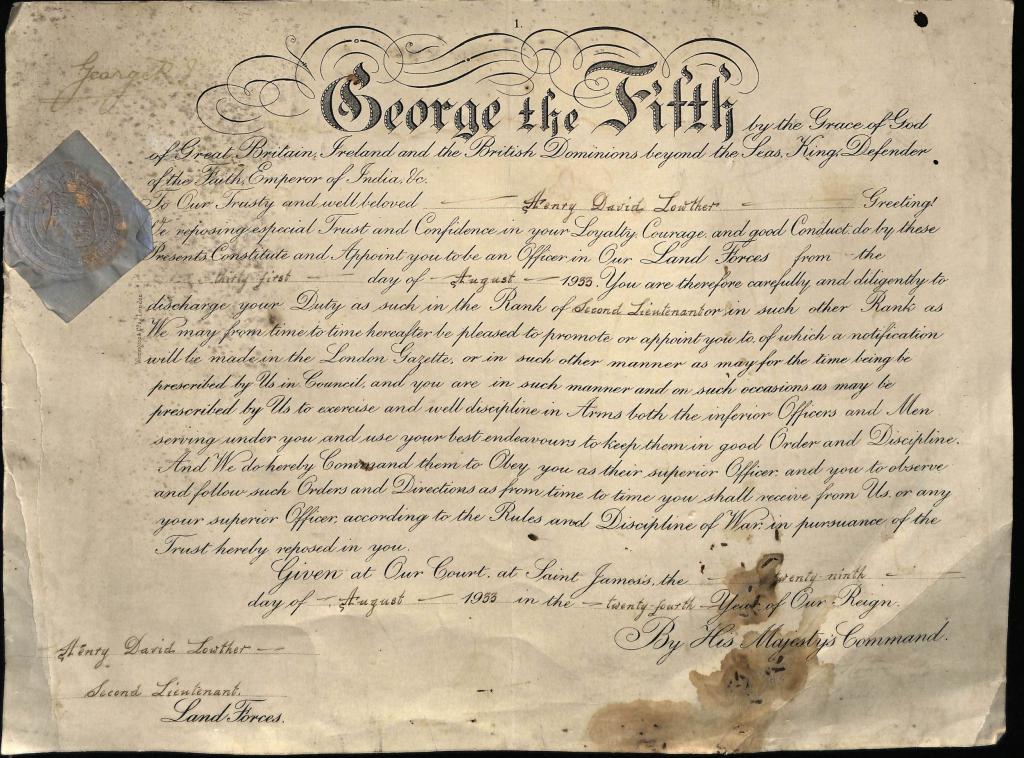 1.
George R.I.
George the Fifth by the Grace of God
of Great Britain, Ireland and the British Dominions beyond the Seas, King, Defender
of the Faith, Emperor of India, &c.
To Our Trusty and well beloved Henry David Lowther Greeting!
We reposing especial Trust and Confidence in your Loyalty, Courage, and good Conduct, do by these
Presents Constitute and Appoint you to be an Officer in Our Land Forces from the
thirty first day of August 1933. You are therefore carefully and diligently to
discharge your Duty as such in the Rank of Second Lieutenant or in such other Rank as
We may from time to time hereafter be pleased to promote or appoint you to, of which a notification
will be made in the London Gazette, or in such other manner as may for the time being be
prescribed by Us in Council, and you are in such manner and on such occasions as may be
prescribed by Us to exercise and well discipline in Arms both the inferior Officers and Men
serving under you and use your best endeavours to keep them in good Order and Discipline.
And We do hereby Command them to Obey you as their superior Officer, and you to observe
and follow such Orders and Directions as from time to time you shall receive from Us, or any
your superior Officer, according to the Rules and Discipline of War, in pursuance of the
Trust hereby reposed in you.
Given at Our Court, at Saint James's, the twenty-ninth
day of August 1933 in the twenty-fourth Year of Our Reign.
By His Majesty's Command.
Henry David Lowther
Second Lieutenant.
Land Forces.